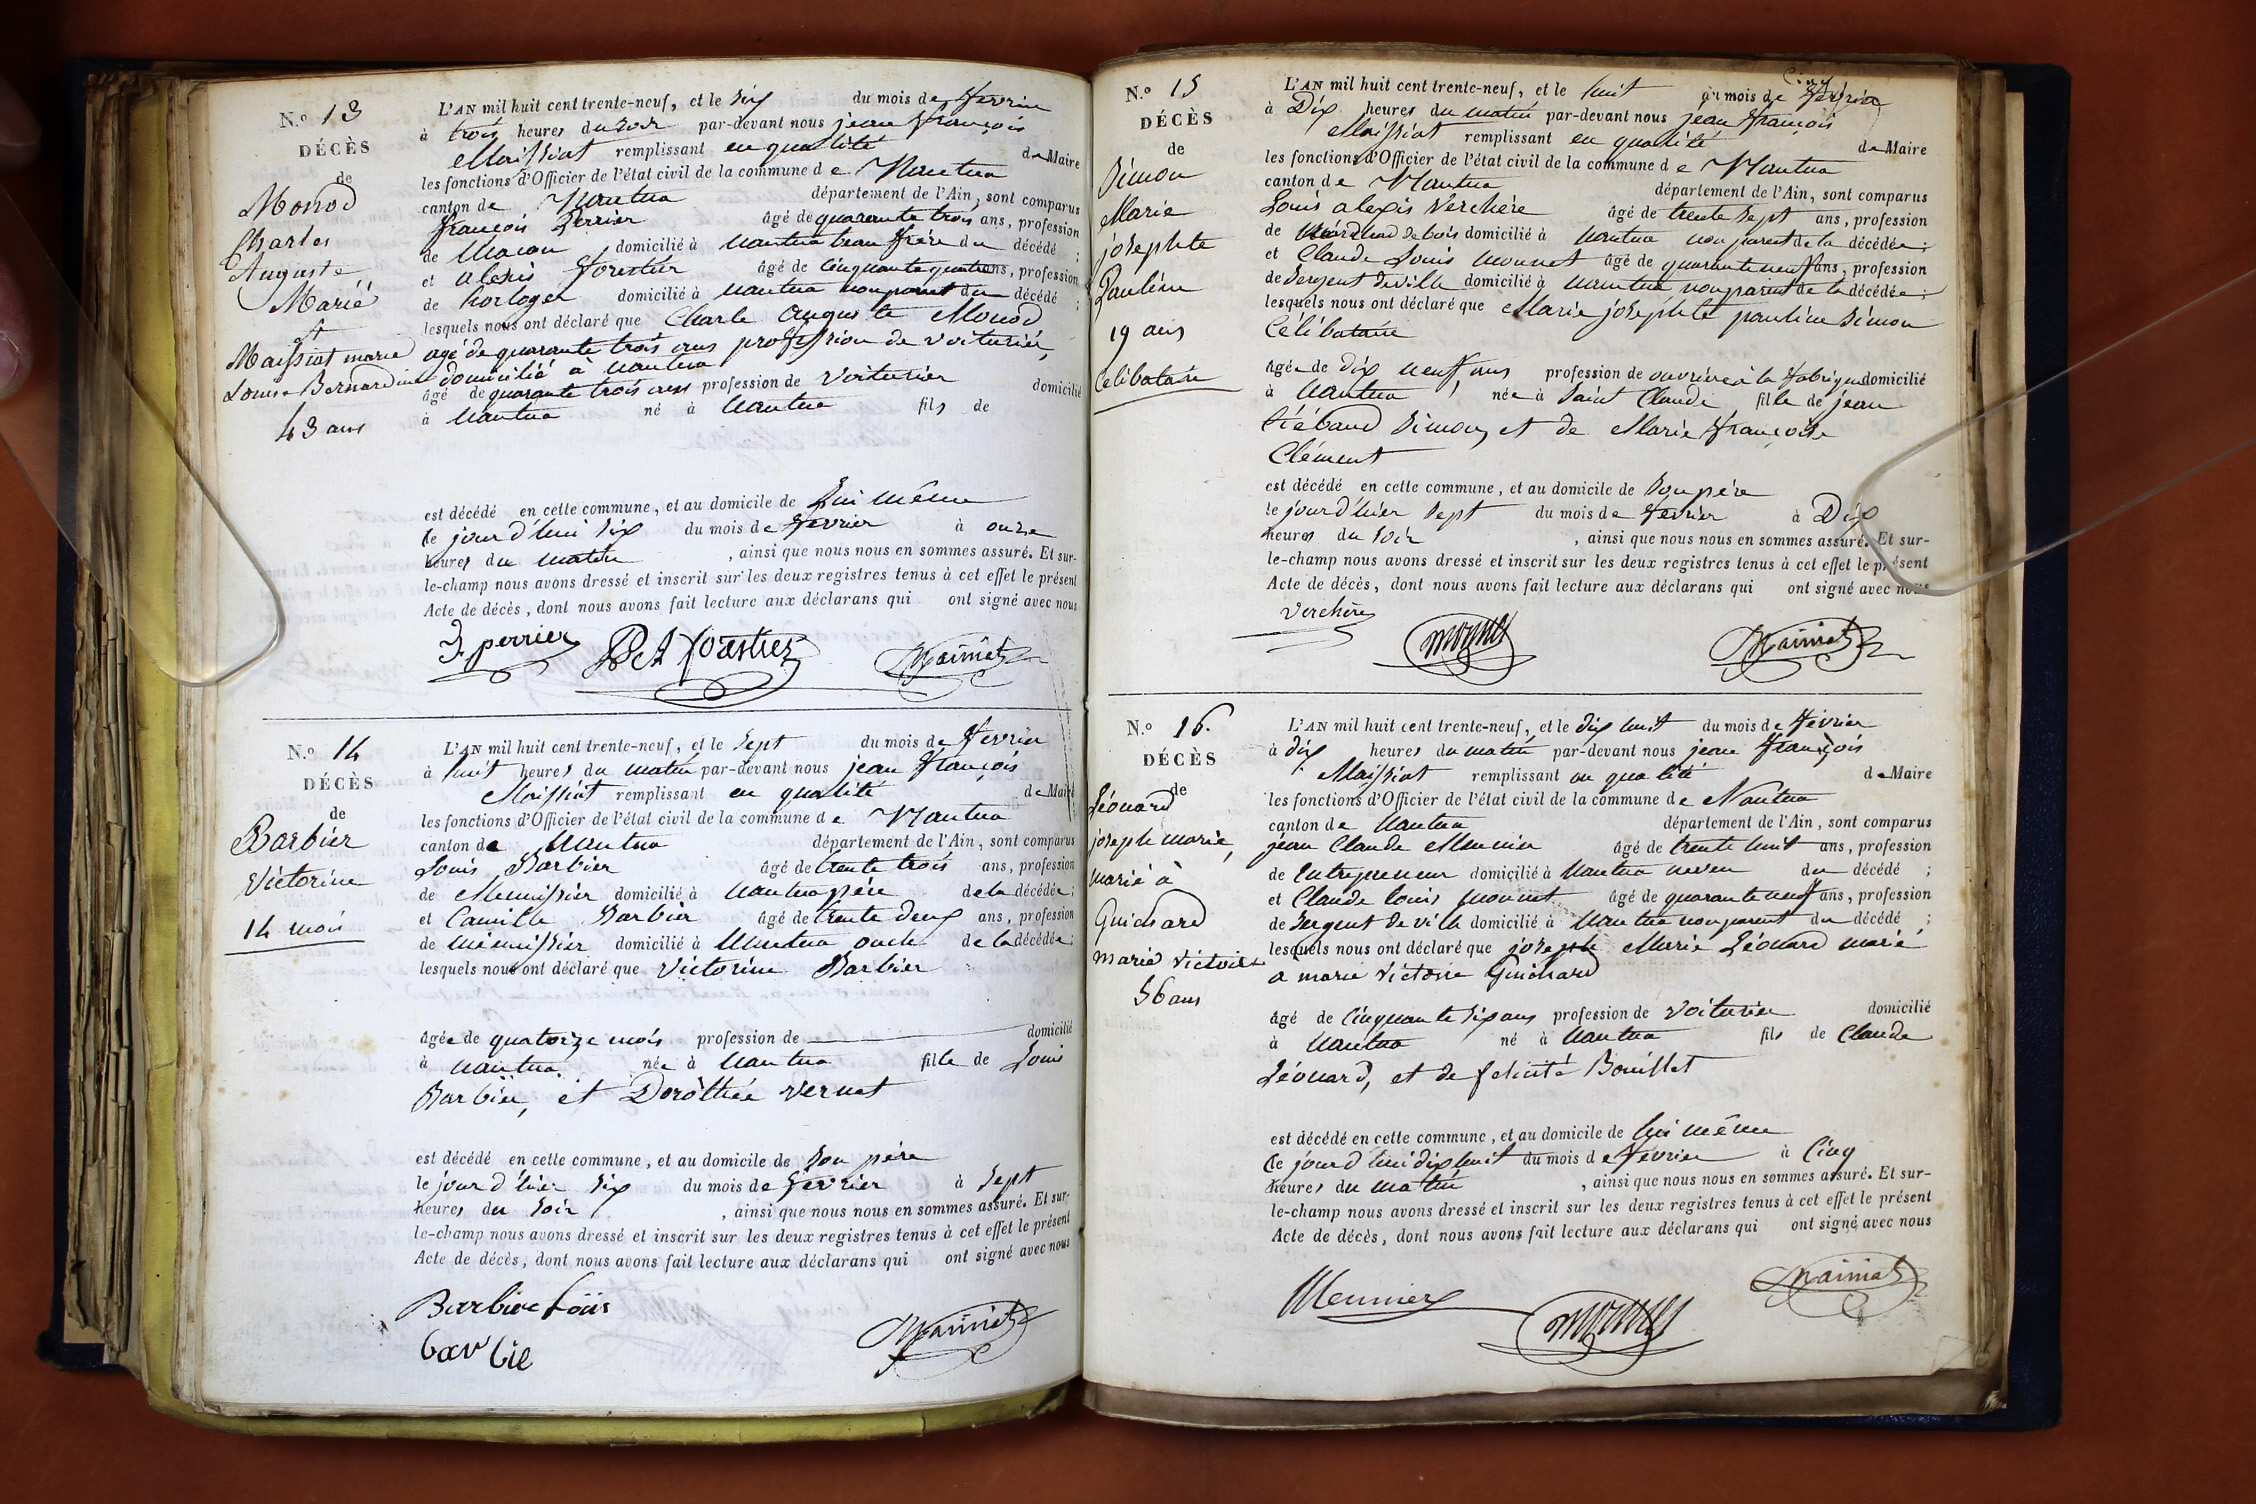 N.o 13
DÉCÈS
de
Monod
Charles
Auguste
Marié
à
Maissiat marie
Louise Bernardine
43 ans
L'AN mil huit cent trente-neuf, et le six du mois de février
à trois heures du soir par-devant nous jean françois
Maissiat remplissant en qualité de Maire
les fonctions d'Officier de l'état civil de la commune de Nantua
canton de Nantua département de l'Ain, sont comparus
françois Perrier âgé de quarante trois ans, profession
de Maçon domicilié à Nantua beau frère du décédé ;
et alexis forestier âgé de cinquante quatre ans, profession
de horloger domicilié à Nantua non parent du décédé ;
lesquels nous ont déclaré que Charle Auguste Monod
agé de quarante trois ans profession de voiturier,
domicilié à Nantua
âgé de quarante trois ans profession de voiturier domicilié
à Nantua né à Nantua fils de
est décédé en cette commune, et au domicile de lui même
le jour d'hui six du mois de février à onze
heures du matin , ainsi que nous nous en sommes assuré. Et sur-
le-champ nous avons dressé et inscrit sur les deux registres tenus à cet effet le présent
Acte de décès, dont nous avons fait lecture aux déclarans qui ont signé avec nous
f. perrier forestier Maissiat
N.o 14
DÉCÈS
de
Barbier
Victorine
14 mois
L'AN mil huit cent trente-neuf, et le sept du mois de février
à huit heures du matin par-devant nous jean françois
Maissiat remplissant en qualité de Maire
les fonctions d'Officier de l'état civil de la commune de Nantua
canton de Nantua département de l'Ain, sont comparus
Louis Barbier âgé de trente trois ans, profession
de Menuisier domicilié à Nantua père de la décédée ;
et Camille Barbier âgé de trente deux ans, profession
de menuisier domicilié à Nantua oncle de la décédée ;
lesquels nous ont déclaré que Victorine Barbier
âgée de quatorze mois profession de domicilié
à Nantua née à Nantua fille de Louis
Barbier, et Dorothée Vernet
est décédé en cette commune, et au domicile de son père
le jour d'hier six du mois de février à sept
heures du soir , ainsi que nous nous en sommes assuré. Et sur-
le-champ nous avons dressé et inscrit sur les deux registres tenus à cet effet le présent
Acte de décès, dont nous avons fait lecture aux déclarans qui ont signé avec nous
Barbier Loüis
Maissiat
N.o 15
DÉCÈS
de
Simon
Marie
josephte
Pauline
19 ans
Célibataire
L'AN mil huit cent trente-neuf, et le huit du mois de février
à Dix heures du matin par-devant nous jean françois
Maissiat remplissant en qualité de Maire
les fonctions d'Officier de l'état civil de la commune de Nantua
canton de Nantua département de l'Ain, sont comparus
Louis alexis Verchère âgé de trente sept ans, profession
de Marchand de bois domicilié à Nantua non parent de la décédée ;
et Claude Louis monnet âgé de quarante neuf ans, profession
de Sergent de ville domicilié à Nantua non parent de la décédée ;
lesquels nous ont déclaré que Marie josephte pauline Simon
Célibataire
âgée de dix neuf ans profession de ouvrière à la fabrique domicilié
à Nantua , née à Saint Claude fille de jean
Ciébaud Simon, et de Marie françoise
Clément
est décédé en cette commune, et au domicile de son père
le jour d'hier sept du mois de février à Dix
heures du soir , ainsi que nous nous en sommes assuré. Et sur-
le-champ nous avons dressé et inscrit sur les deux registres tenus à cet effet le présent
Acte de décès, dont nous avons fait lecture aux déclarans qui ont signé avec nous
Verchère monnet Maissiat
N.o 16.
DÉCÈS
de
Léonard
joseph marie,
marié à
Guichard
marie victoire
56 ans
L'AN mil huit cent trente-neuf, et le dix huit du mois de février
à dix heures du matin par-devant nous jean françois
Maissiat remplissant en qualité de Maire
les fonctions d'Officier de l'état civil de la commune de Nantua
canton de Nantua département de l'Ain, sont comparus
jean Claude Meunier âgé de trente huit ans, profession
de Entrepreneur domicilié à Nantua neveu du décédé ;
et Claude Louis monnet âgé de quarante neuf ans, profession
de Sergent de ville domicilié à Nantua non parent du décédé ;
lesquels nous ont déclaré que joseph Marie Léonard marié
a marie Victoire Guichard
âgé de cinquante six ans profession de voiturier domicilié
à Nantua né à Nantua fils de Claude
Léonard, et de felicité Bouillet
est décédé en cette commune, et au domicile de lui même
le jour d'hui dix huit du mois de février à Cinq
heures du matin , ainsi que nous nous en sommes assuré. Et sur-
le-champ nous avons dressé et inscrit sur les deux registres tenus à cet effet le présent
Acte de décès, dont nous avons fait lecture aux déclarans qui ont signé avec nous
Meunier monnet Maissiat